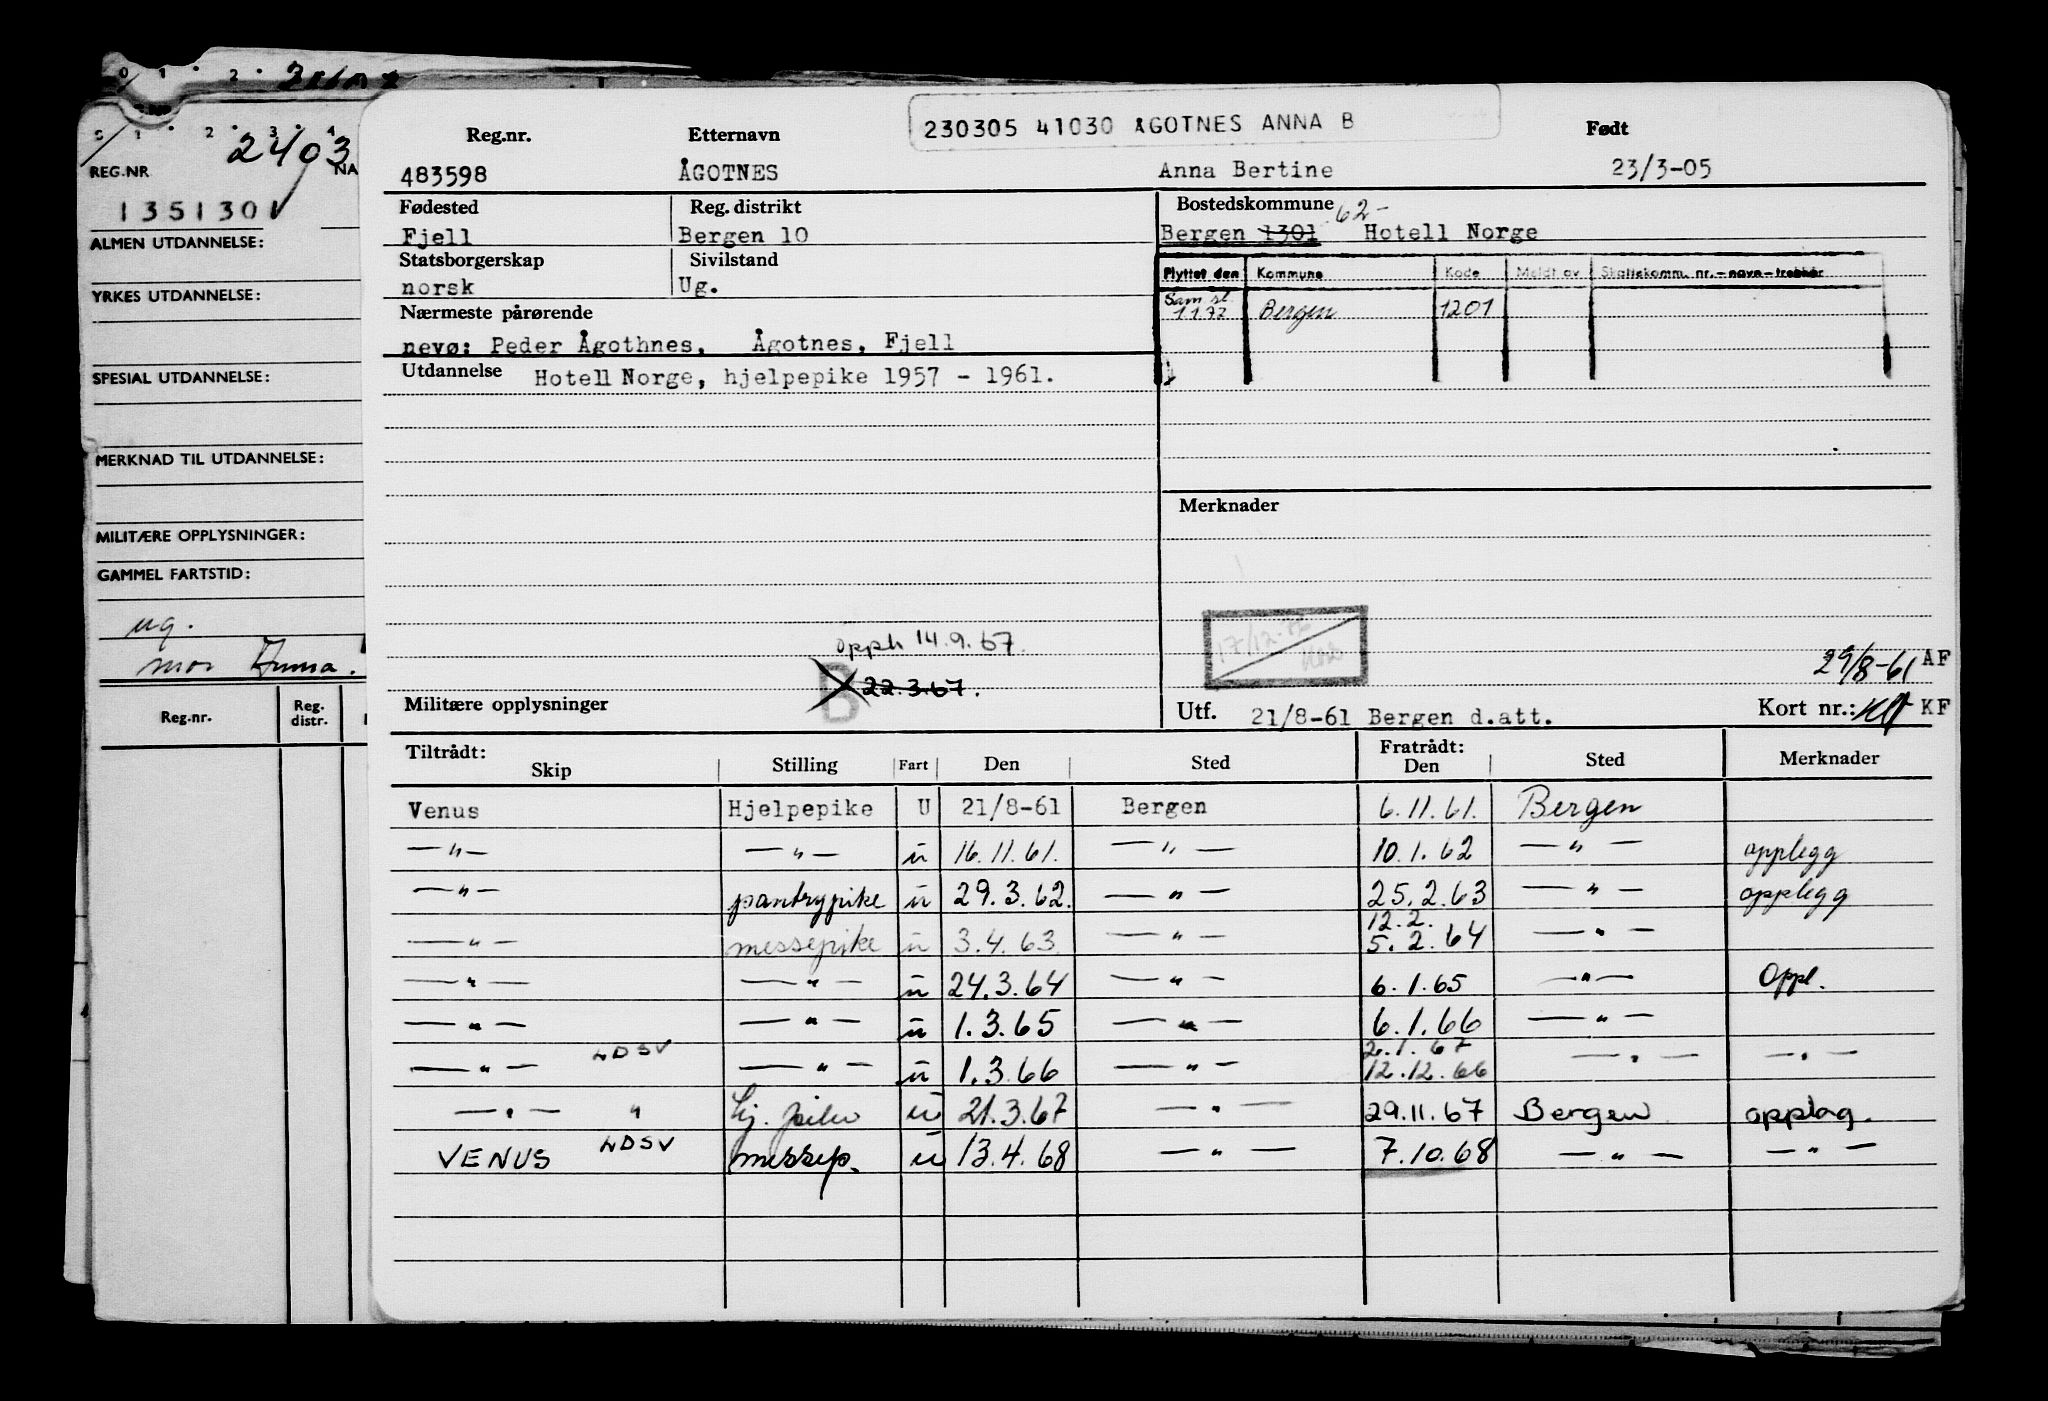 0 1 2
S 1 2 3 4
2403
REG.NR NA
135130
ALMEN UTDANNELSE:
YRKES UTDANNELSE:
SPESIAL UTDANNELSE:
MERKNAD TIL UTDANNELSE:
MILITÆRE OPPLYSNINGER:
GAMMEL FARTSTID:
ug.
mor Anna.
Reg.nr. Reg. distr.
230305 41030 ÅGOTNES ANNA B
Reg.nr. Etternavn Født
483598 ÅGOTNES Anna Bertine 23/3-05
Fødested Reg. distrikt Bostedskommune 62-
Fjell Bergen 10 Bergen 1301 Hotell Norge
Statsborgerskap Sivilstand
norsk Ug.
Flyttet den Kommune Kode Meldt av Skattekomm. nr. - navn - trekkår
Sam.sl. 1 1 72 Bergen 1201
Nærmeste pårørende
nevø: Peder Ågothnes, Ågotnes, Fjell
Utdannelse Hotell Norge, hjelpepike 1957 - 1961.
Merknader
opph 14.9.67.
B 22.3.67.
17/12-76
29/8-61 AF
Militære opplysninger
Utf. 21/8-61 Bergen d.att. Kort nr.: KF
Tiltrådt: Skip Stilling Fart Den Sted Fratrådt: Den Sted Merknader
Venus Hjelpepike U 21/8-61 Bergen 6.11.61. Bergen
— " — — " — u 16.11.61. — " — 10.1.62 — " — opplegg
— " — pantrypike u 29.3.62. — " — 25.2.63 — " — opplegg
— " — messepike u 3.4.63. — " — 12.2. 5.2.64 — " —
— " — — " — u 24.3.64 — " — 6.1.65 — " — Oppl.
— " — — " — u 1.3.65 — " — 6.1.66 — " —
— " — LDSV — " — u 1.3.66 — " — 2.1.67 12.12.66 — " — — " —
— " — " hj. pike u 21.3.67 — " — 29.11.67 Bergen opplag.
VENUS LDSV messep. u 13.4.68 — " — 7.10.68 — " — — " —